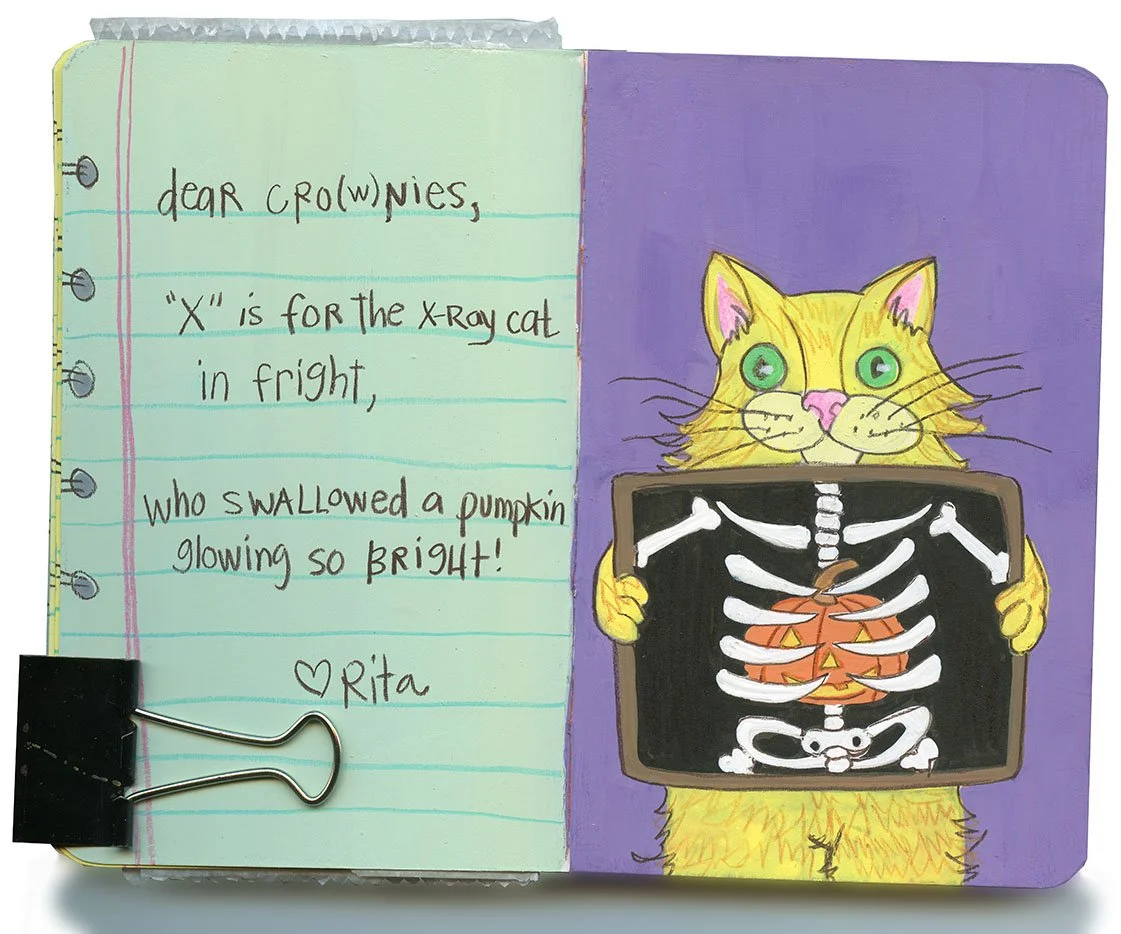 dear cro(w)nies,
"X" is for the X-Ray cat
in fright,
who swallowed a pumpkin
glowing so bright!
♡ Rita